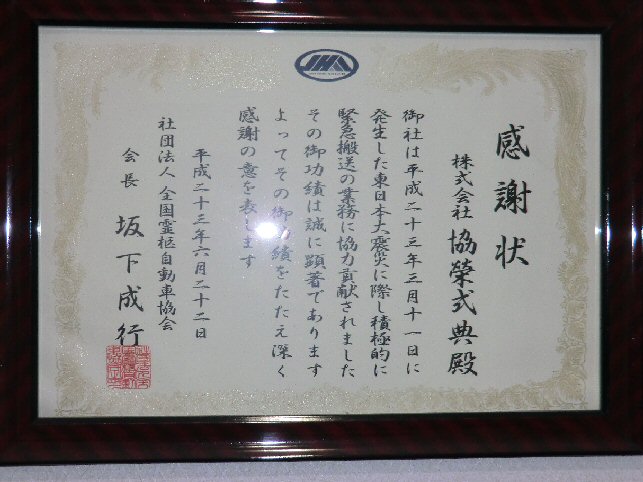 感謝状
株式会社 協榮式典殿
御社は平成二十三年三月十一日に
発生した東日本大震災に際し積極的に
緊急搬送の業務に協力貢献されました
その御功績は誠に顕著であります
よってその御功績をたたえ深く
感謝の意を表します
平成二十三年六月二十二日
社団法人 全国霊柩自動車協会
会長 坂下成行